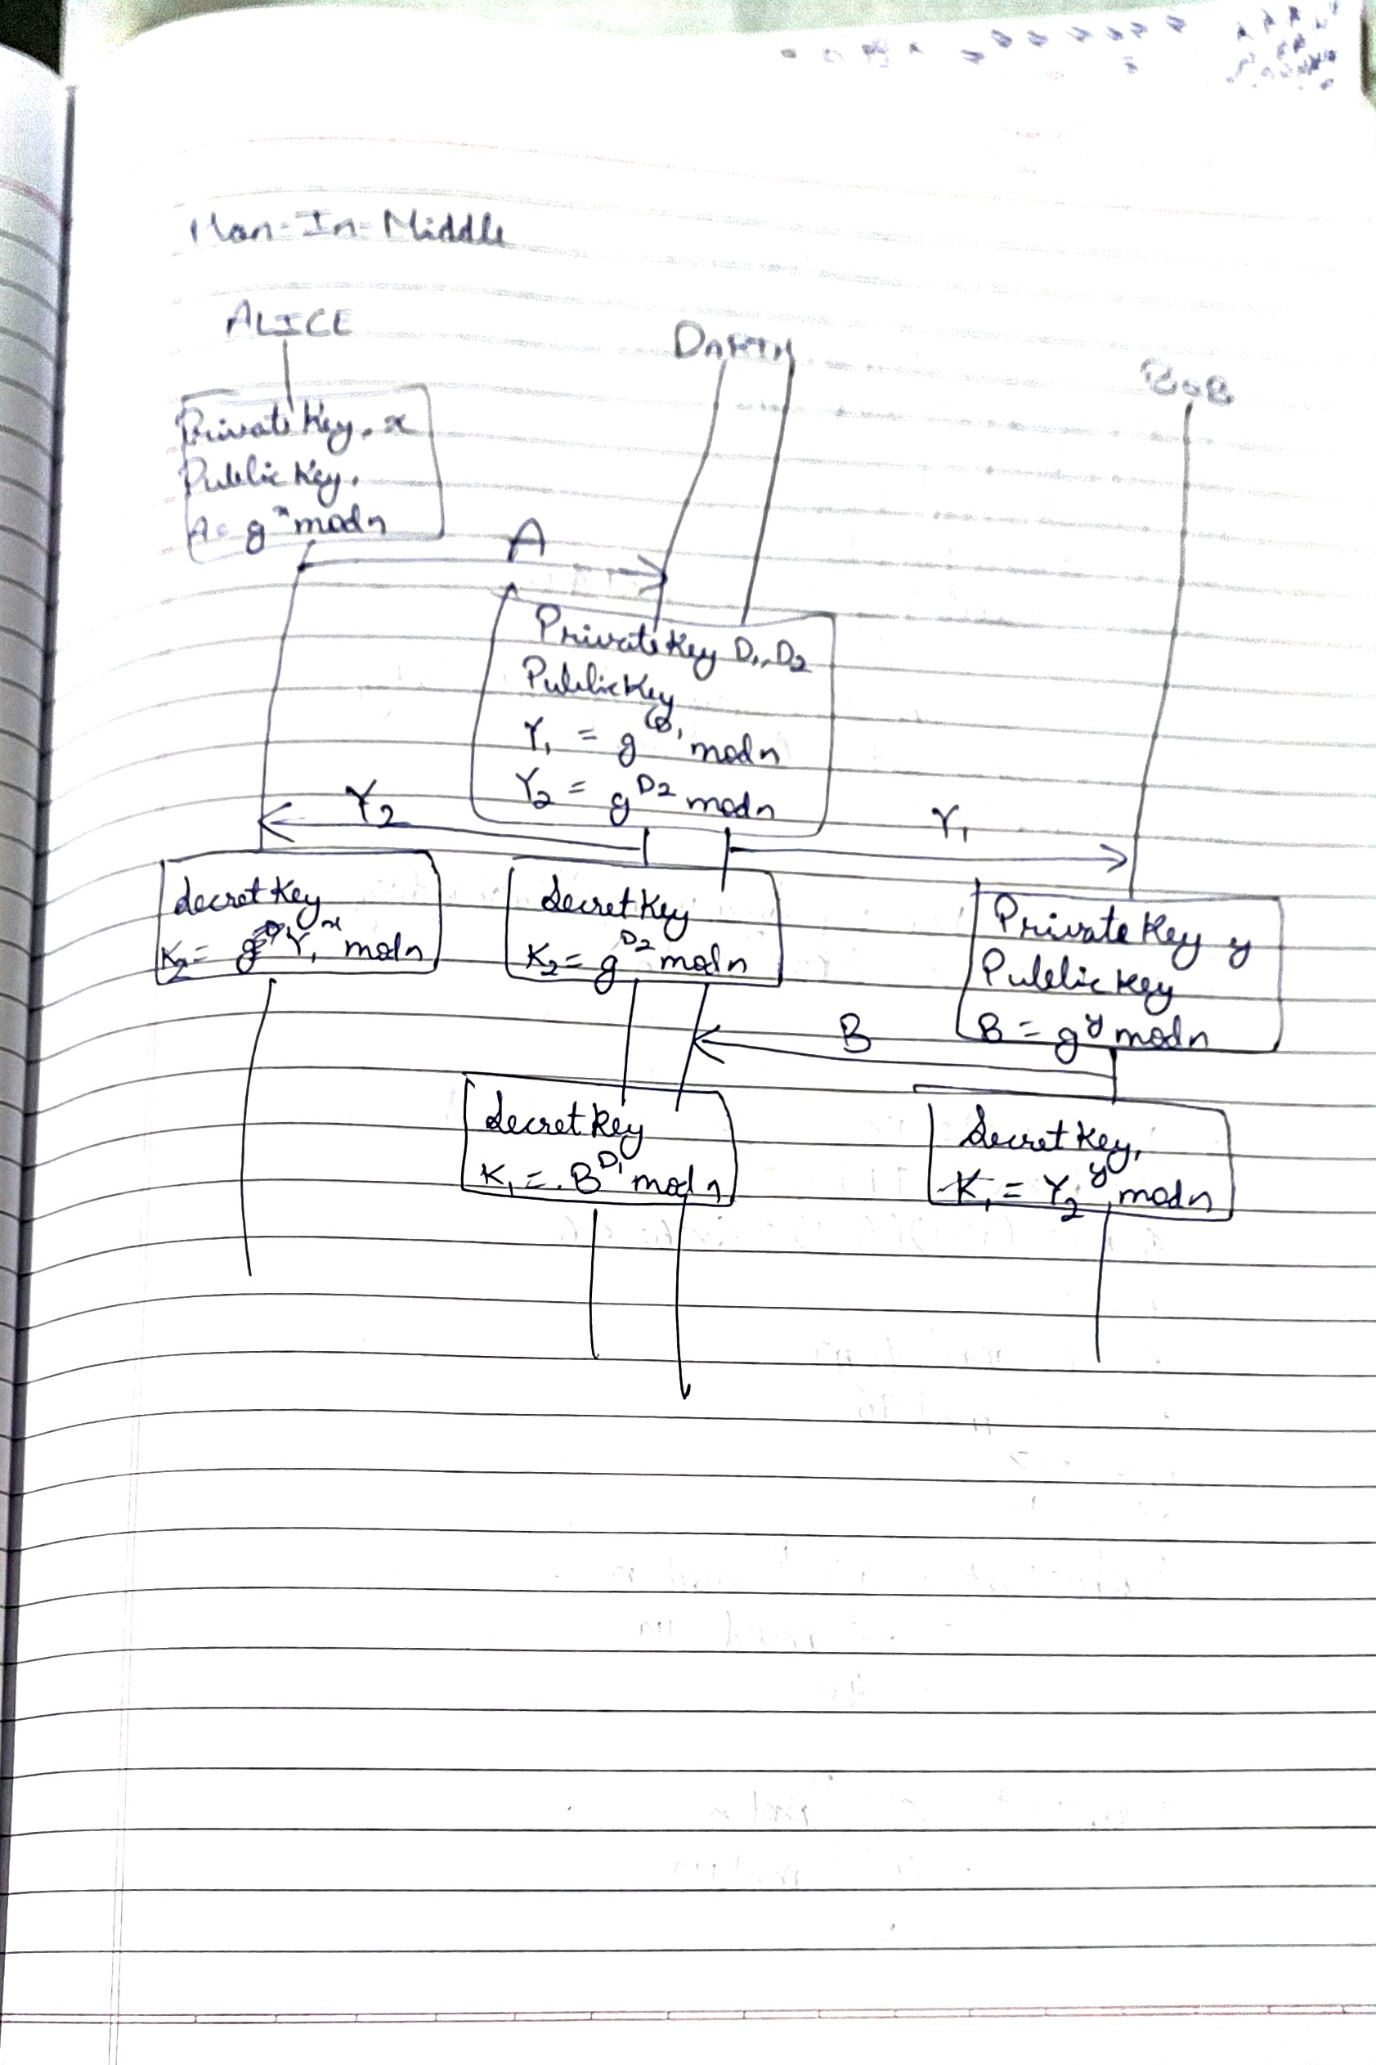 Man-In-Middle
ALICE
DARTH
BOB
Private Key, x
Public Key,
A = g^x mod n
A
Private Key D1, D2
Public Key
Y1 = g^D1 mod n
Y2 = g^D2 mod n
Y2
Y1
Secret Key
K2 = Y1^x mod n
Secret Key
K2 = g^D2 mod n
Private Key y
Public Key
B = g^y mod n
B
Secret Key
K1 = B^D1 mod n
Secret Key,
K1 = Y2^y mod n